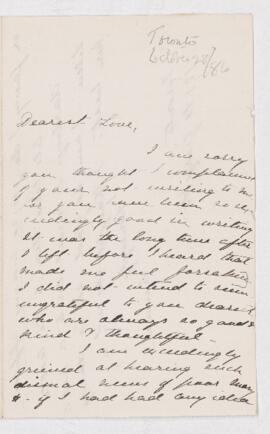 Toronto
October 28/
/86
Dearest Love,
I am sorry
you thought I complained
of your not writing to me
for you have been so ex-
ceedingly good in writing
it was the long time after
I left before I heard that
made me feel forsaken
I did not intend to seem
ungrateful to you dearest
who are always so good &
kind & thoughtful -
I am exceedingly
grieved at hearing such
dismal news of poor Mary
H - if I had had any idea